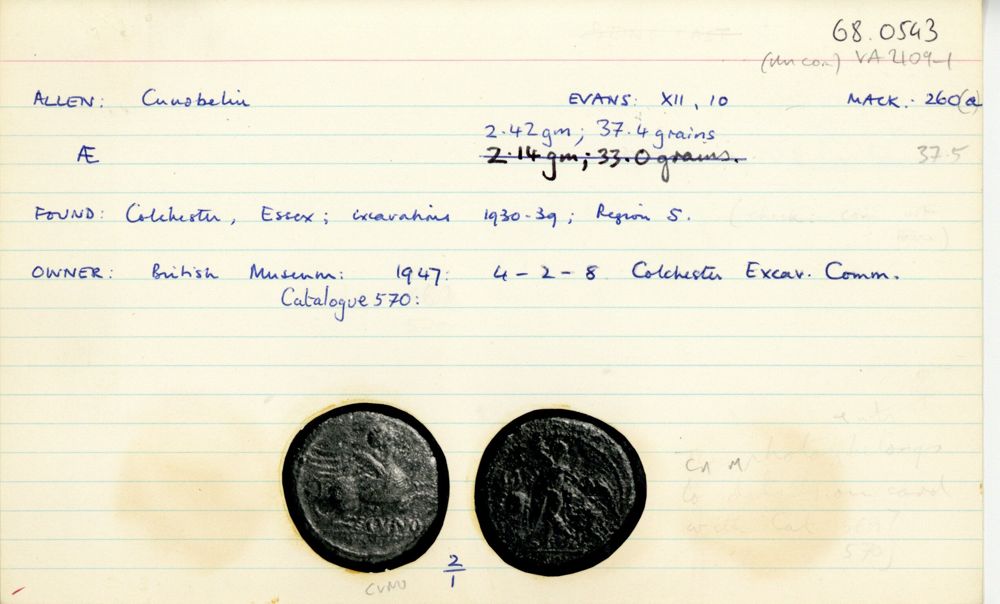 68.0543
(Un con) VA 2109-1
ALLEN: Cunobelin EVANS: XII, 10 MACK: 260(a
2.42 gm; 37.4 grains
Æ 2.14 gm; 33.0 grains. 37.5
FOUND: Colchester, Essex; excavations 1930-39; Region 5.
OWNER: British Museum: 1947: 4-2-8 Colchester Excav. Comm.
Catalogue 570:
CA M
CUNO
2/1
CVNO